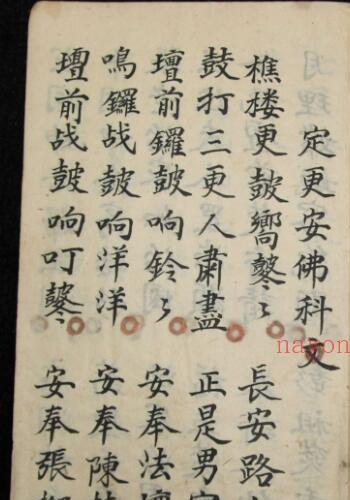 定更安佛科文
樵楼更鼓嚮鼕〻 長安路
鼓打三更人肅盡 正是男
壇前鑼鼓响鈴〻 安奉法壇
鳴鑼战鼓响洋洋 安奉陳
壇前战鼓响叮鼕 安奉張